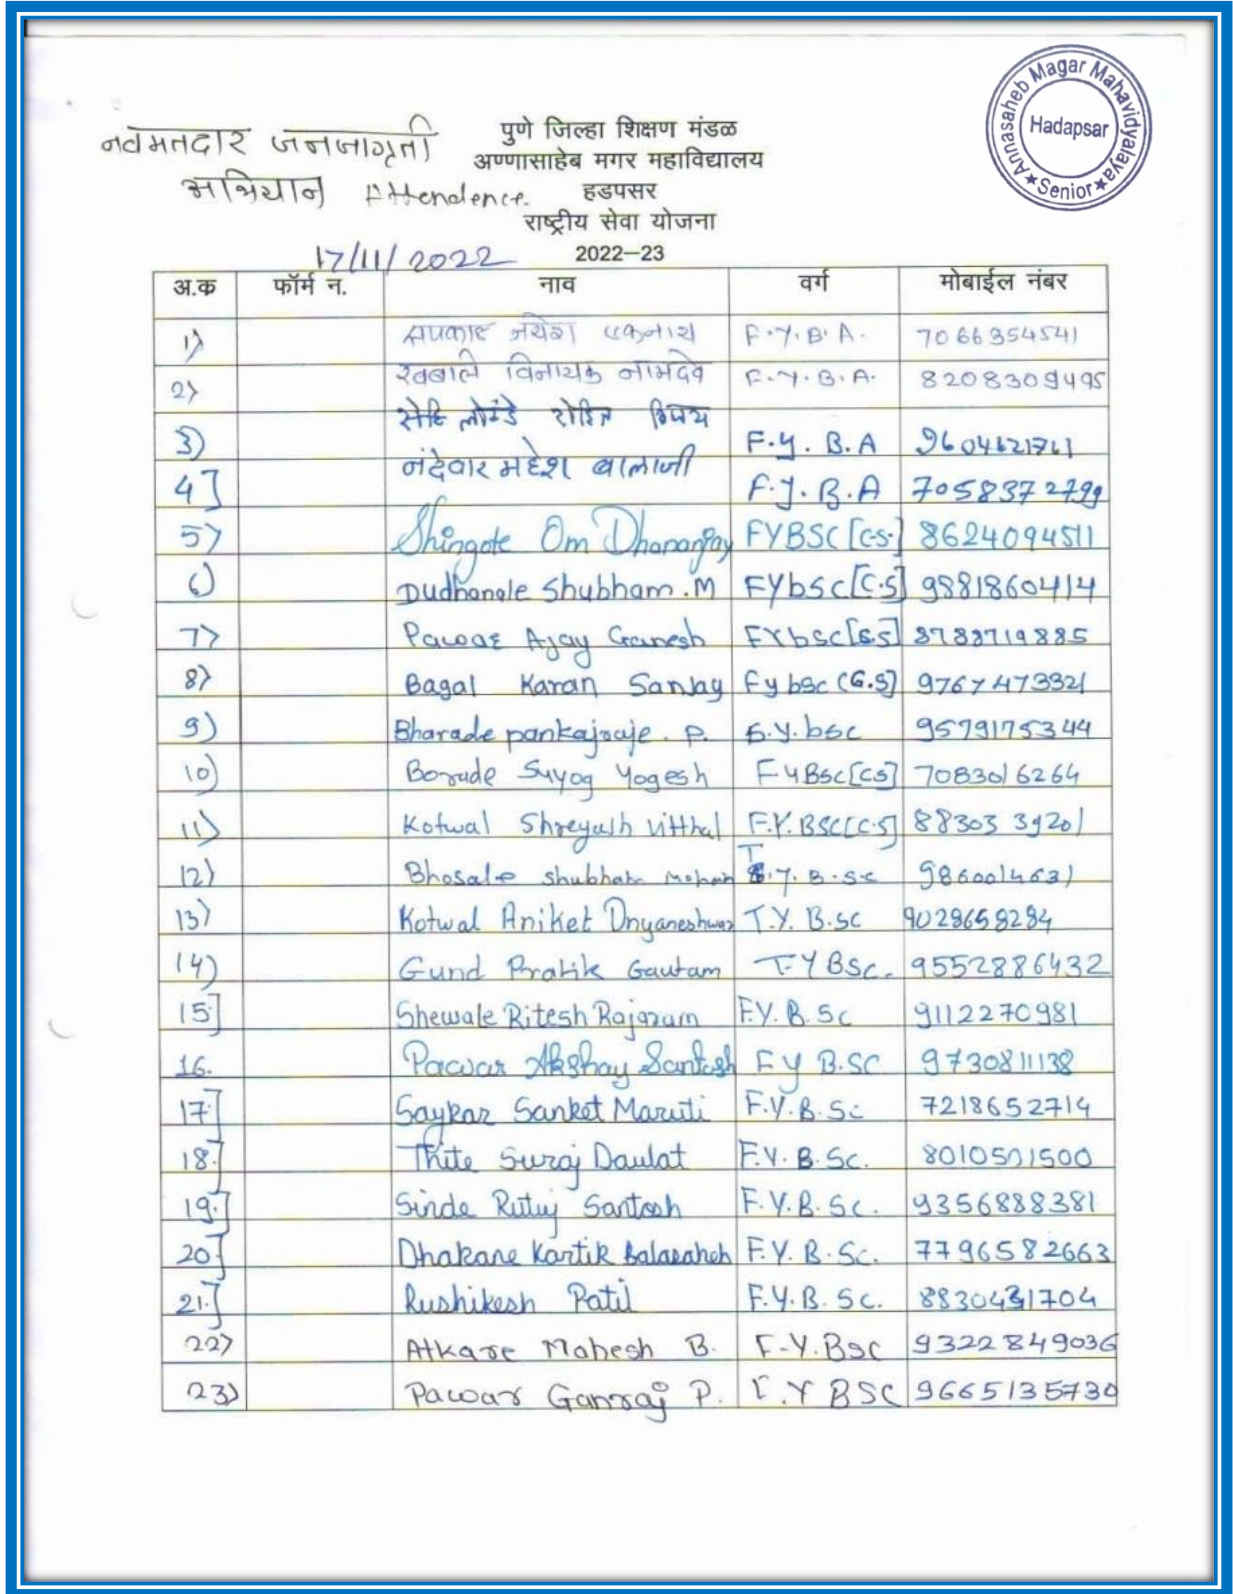 Annasaheb Magar Mahavidyalaya
Hadapsar
★ Senior ★
नवमतदार जनजागृती
अभियान Attendence.
पुणे जिल्हा शिक्षण मंडळ
अण्णासाहेब मगर महाविद्यालय
हडपसर
राष्ट्रीय सेवा योजना
17/11/2022 2022–23
अ.क फॉर्म न. नाव वर्ग मोबाईल नंबर
1) एकनाथ F.Y.B.A. 7066354541
2) खबाले विनायक नामदेव F.Y.B.A. 8208309495
3) लोंढे रोहित F.Y.B.A 9604621761
4] नंदेवार महेश बालाजी F.Y.B.A 7058372799
5) Shingote Om Dhananjay FYBSC[C.S.] 8624094511
6) Dudhanale Shubham.M FYbSC[C.S] 9881860414
7) Pawar Ajay Ganesh FYbSC[C.S] 8788719885
8) Bagal Karan Sanjay Fybsc (C.S] 9767473321
9) Bharade pankajraje. P. S.y.bsc 9579175344
10) Borude Suyog Yogesh FyBSC[CS] 7083016264
11) Kotwal Shreyash Vitthal F.Y.BSC[C.S] 8830339201
12) Bhosale Shubham Mohan T.Y.B.Sc 9860014631
13) Kotwal Aniket Dnyaneshwar T.Y.B.sc 9028658284
14) Gund Pratik Gautam T.YBSc. 9552886432
15] Shewale Ritesh Rajaram F.Y.B.Sc 9112270981
16. Pawar Akshay Santosh F Y B.SC 9730811138
17.] Saykar Sanket Maruti F.Y.B.Sc 7218652714
18.] Thite Suraj Daulat F.Y.B.Sc. 8010501500
19.] Sinde Rutuj Santosh F.Y.B.Sc. 9356888381
20] Dhakane Kartik Balasaheb F.Y.B.Sc. 7796582663
21.] Rushikesh Patil F.Y.B.Sc. 8830431704
22) Atkare Mahesh B. F.Y.Bsc 9322849036
23) Pawar Ganraj P. F.Y BSC 9665135730